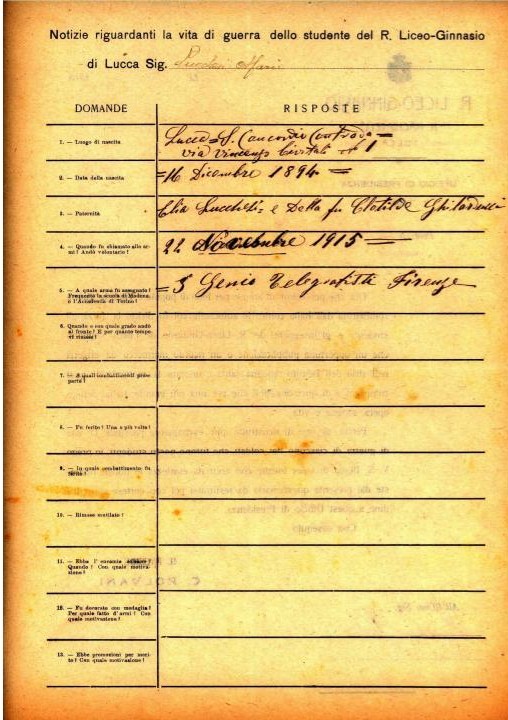 Notizie riguardanti la vita di guerra dello studente del R. Liceo-Ginnasio
di Lucca Sig. Lucchesi Mario
DOMANDE
RISPOSTE
1. — Luogo di nascita
Lucca S. Concordio Contrada =
via Vincenzo Civitali N 1
2. — Data della nascita
= 16 Dicembre 1894 =
3. — Paternità
Elia Lucchesi = e Della fu Clotilde Ghilarducci
4. — Quando fu chiamato alle armi? Andò volontario?
22 Novembre 1915 =
5. — A quale arma fu assegnato?
Frequentò la scuola di Modena
o l'Accademia di Torino?
= 3 Genio Telegrafisti Firenze
6. — Quando e con quale grado andò
al fronte? E per quanto tempo
vi rimase?
7. — A quali combattimenti prese
parte?
8. — Fu ferito? Una o più volte?
9. — In quale combattimento fu
ferito?
10. — Rimase mutilato?
11. — Ebbe l'encomio
Quando? Con quale motivazione?
12. — Fu decorato con medaglia?
Per quale fatto d'armi? Con
quale motivazione?
13. — Ebbe promozioni per merito? Con quale motivazione?